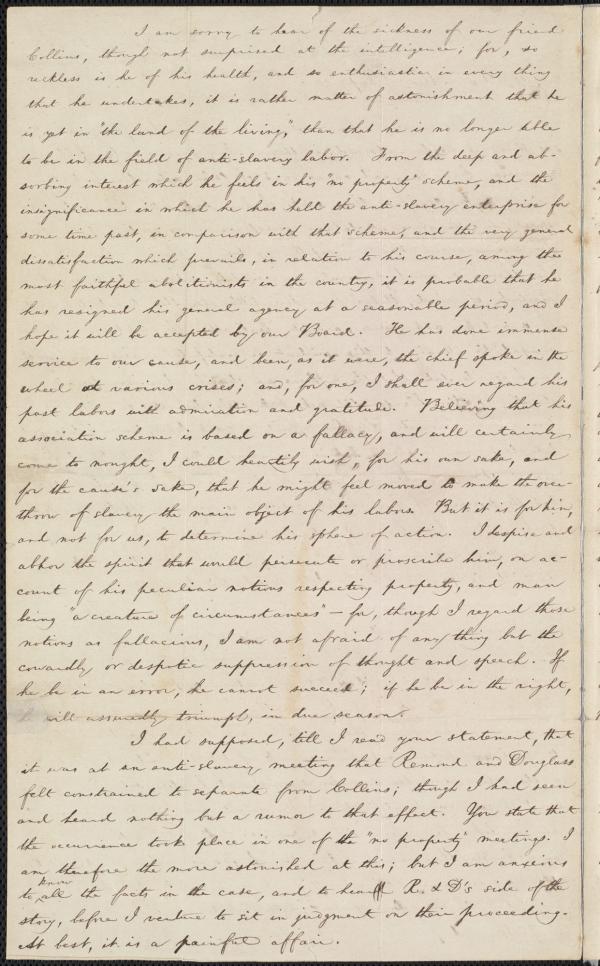 I am sorry to hear of the sickness of our friend
Collins, though not surprised at the intelligence; for, so
reckless is he of his health, and so enthusiastic in every thing
that he undertakes, it is rather matter of astonishment that he
is yet in "the land of the living," than that he is no longer able
to be in the field of anti-slavery labor. From the deep and ab-
sorbing interest which he feels in his "no property" scheme, and the
insignificance in which he has held the anti-slavery enterprise for
some time past, in comparison with that scheme, and the very general
dissatisfaction which prevails, in relation to his course, among the
most faithful abolitionists in the country, it is probable that he
has resigned his general agency at a seasonable period, and I
hope it will be accepted by our Board. He has done immense
service to our cause, and been, as it were, the chief spoke in the
wheel at various crises; and, for one, I shall ever regard his
past labors with admiration and gratitude. Believing that his
association scheme is based on a fallacy, and will certainly
come to nought, I could heartily wish, for his own sake, and
for the cause's sake, that he might feel moved to make the over-
throw of slavery the main object of his labors. But it is for him,
and not for us, to determine his sphere of action. I despise and
abhor the spirit that would persecute or proscribe him, on ac-
count of his peculiar notions respecting property, and man
being "a creature of circumstances" — for, though I regard those
notions as fallacious, I am not afraid of any thing but the
cowardly or despotic suppression of thought and speech. If
he be in an error, he cannot succeed; if he be in the right,
he will assuredly triumph, in due season.
I had supposed, till I read your statement, that
it was at an anti-slavery meeting that Remond and Douglass
felt constrained to separate from Collins; though I had seen
and heard nothing but a rumor to that effect. You state that
the occurrence took place in one of the "no property" meetings. I
am therefore the more astonished at this; but I am anxious
to know all the facts in the case, and to hear R. & D's side of the
story, before I venture to sit in judgment on their proceeding.
At best, it is a painful affair.